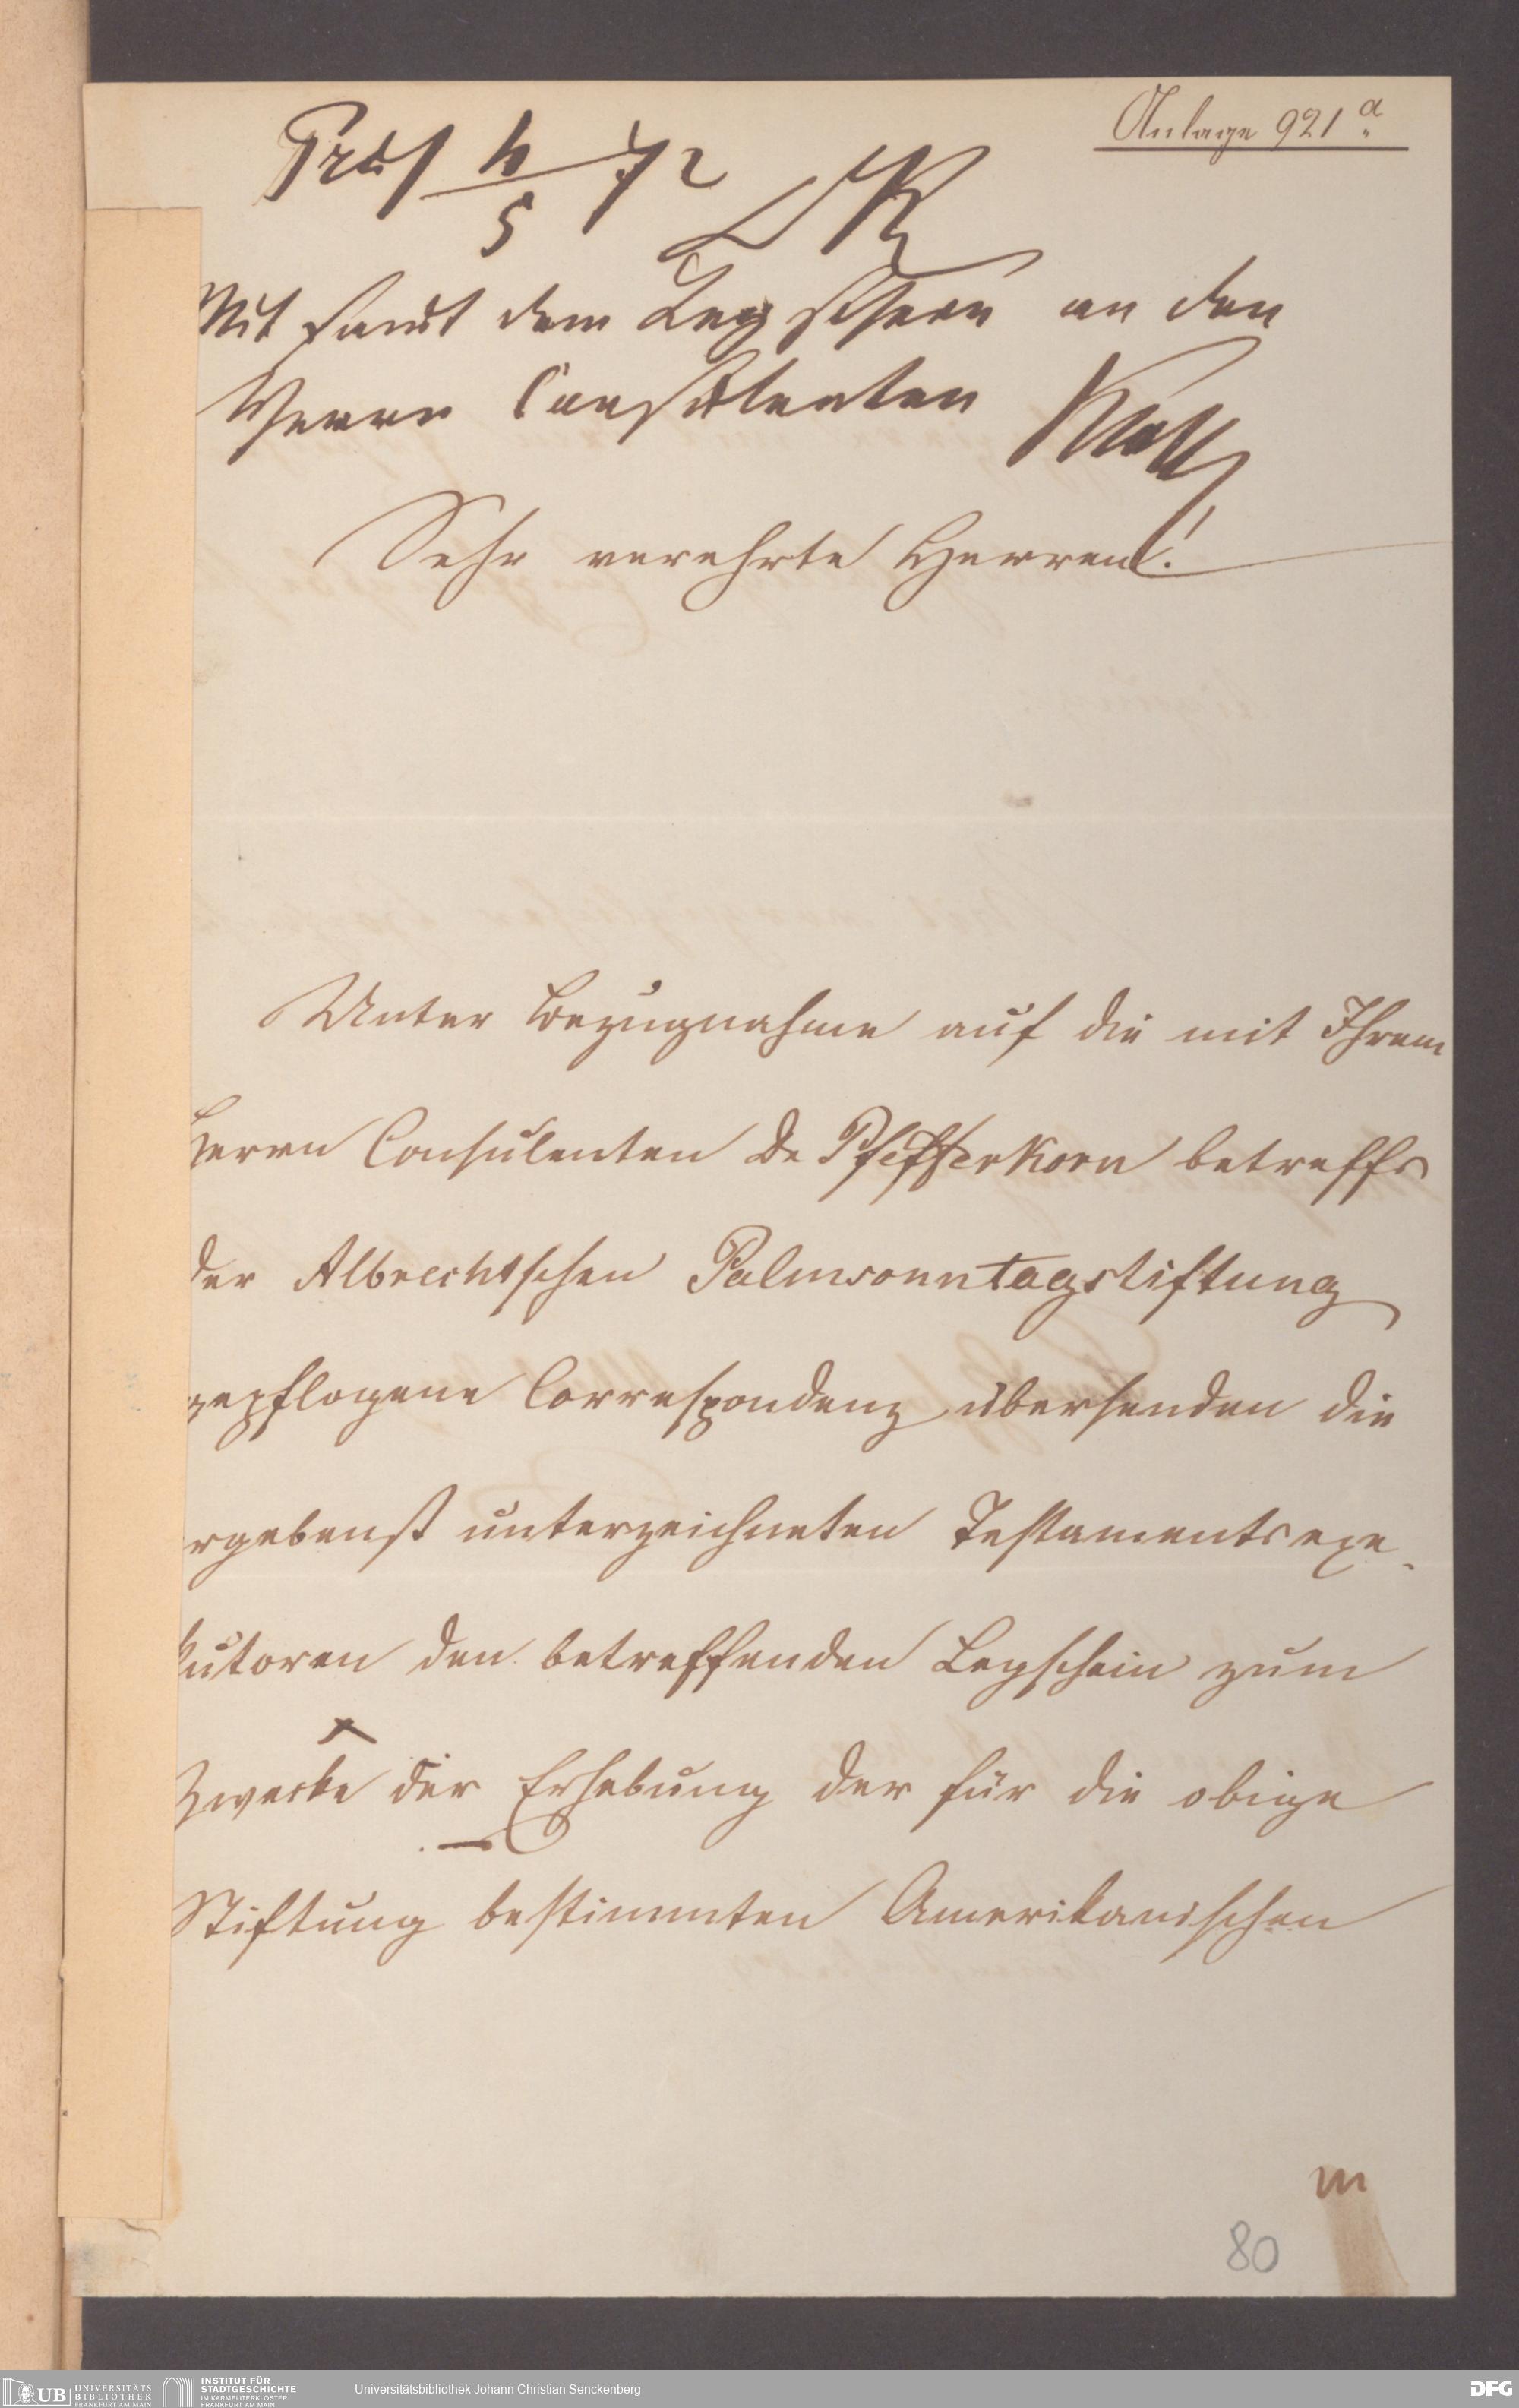 Anlage 921 a.
Präs 4/5 72
Mit samt dem Legschein an den
Herrn Consulenten
Sehr verehrte Herren!
Unter Bezugnahme auf die mit Ihrem
Herrn Consulenten Dr Pfefferkorn betreffs
der Albrechtschen Palmsonntagstiftung
gepflogene Correspondenz übersenden die
ergebenst unterzeichneten Testamentsexe-
kutoren den betreffenden Legschein zum
Zwecke der Erhebung der für die obige
Stiftung bestimmten Amerikanischen
80
UB UNIVERSITÄTS
BIBLIOTHEK
FRANKFURT AM MAIN
INSTITUT FÜR
STADTGESCHICHTE
IM KARMELITERKLOSTER
FRANKFURT AM MAIN
Universitätsbibliothek Johann Christian Senckenberg
DFG